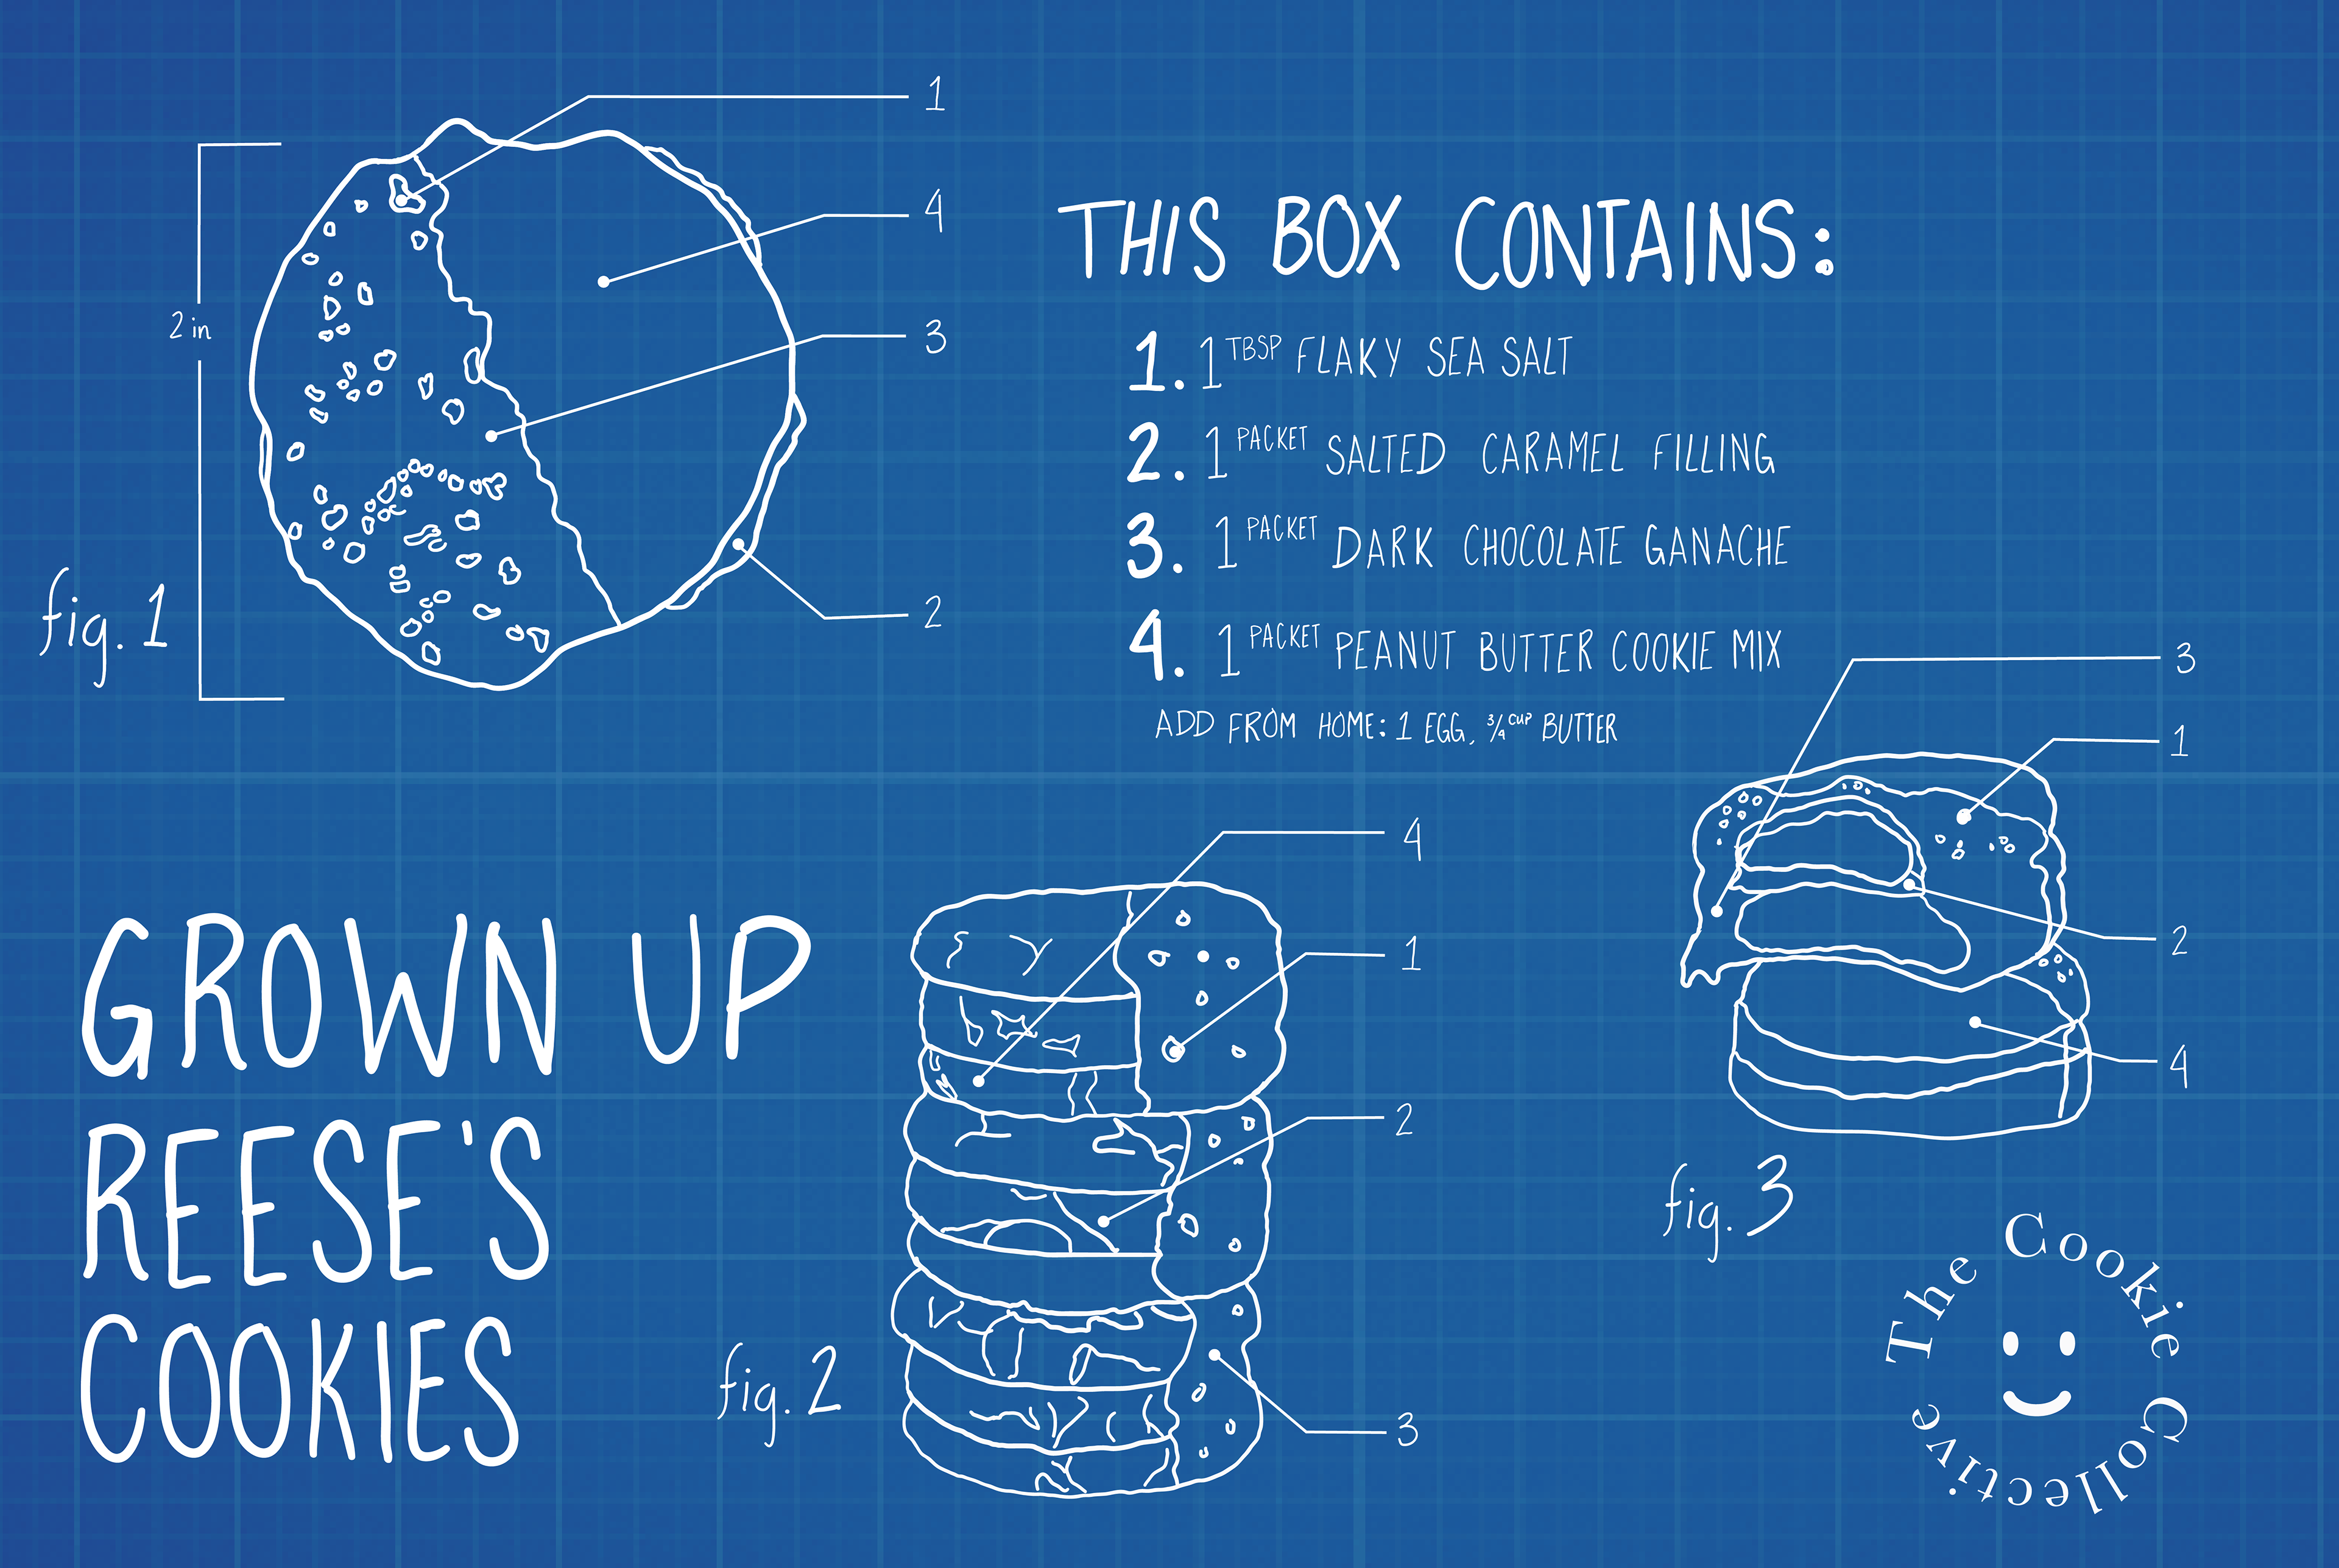 1
4
2 in
3
2
fig. 1
THIS BOX CONTAINS:
1. 1 TBSP FLAKY SEA SALT
2. 1 PACKET SALTED CARAMEL FILLING
3. 1 PACKET DARK CHOCOLATE GANACHE
4. 1 PACKET PEANUT BUTTER COOKIE MIX
ADD FROM HOME: 1 EGG, 3/4 CUP BUTTER
GROWN UP
REESE'S
COOKIES
4
1
2
3
fig. 2
3
1
2
4
fig. 3
The Cookie Collective